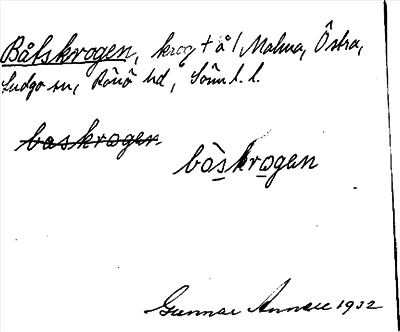 Båtskrogen, krog t å l, Malma, Östra,
Ludgo sn, Rönö hd, Söm l. l.
baskrogen
bòskrogen
Gunnar 1932